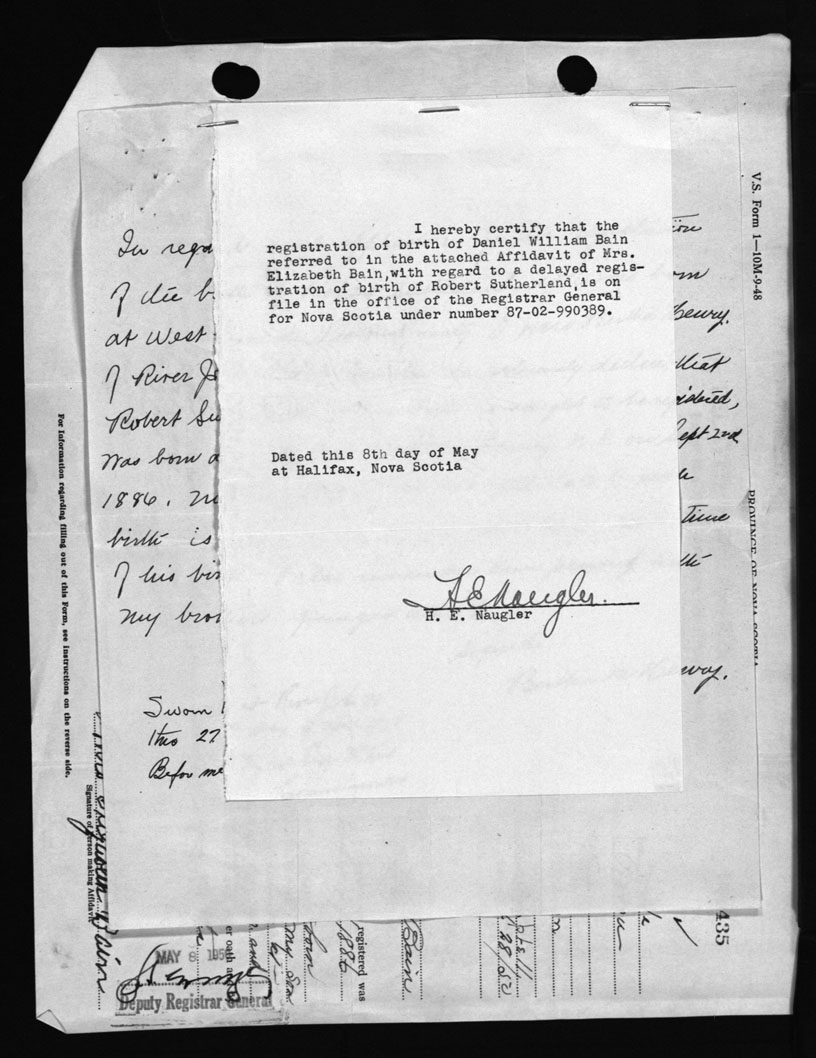 I hereby certify that the
registration of birth of Daniel William Bain
referred to in the attached Affidavit of Mrs.
Elizabeth Bain,with regard to a delayed regis-
tration of birth of Robert Sutherland,is on
file in the office of the Registrar General
for Nova Scotia under number 87-02-990389.
Dated this 8th day of May
at Halifax, Nova Scotia
H E Naugler.
H. E. Naugler
In rega
of the b
at West
of River Jo
Robert Su
was born a
1886.
birth is
of his bir
my bro
Sworn
this 27
Befor me
that
Sept 2nd
time
V.S. Form 1—10M-9-48
PROVINCE OF NOVA SCOTIA
For Information regarding filling out of this Form, see Instructions on the reverse side.
Signature of Person making Affidavit
MAY 8 195
Deputy Registrar General
er oath and
my son
born
1886
registered was
Bain
435